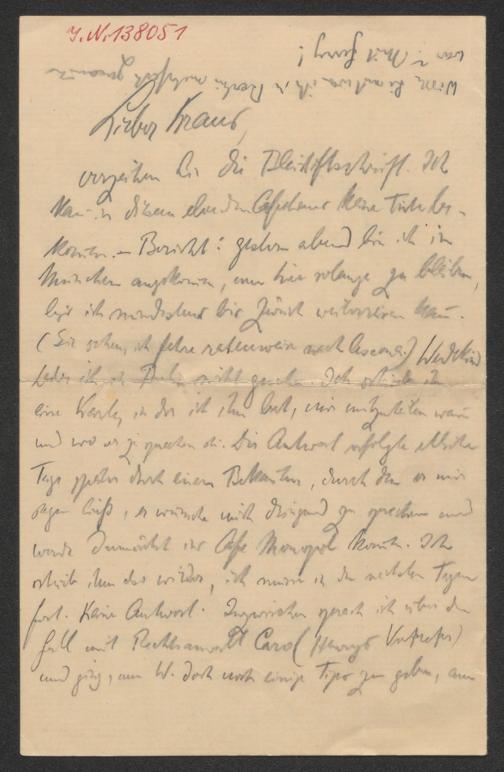 J.N. 138051
Lieber Kraus,
verzeihen Sie die Bleistiftschrift. Ich
kann in diesem elenden Caféhaus keine Tinte be-
kommen. – Bericht: gestern abend bin ich in
München angekommen, um hier solange zu bleiben,
bis ich mindestens bis Zürich weiterreisen kann.
(Sie sehen, ich fahre ratenweise nach Ascona.) Wedekind
habe ich in Berlin nicht gesehen. Ich schrieb ihm
eine Karte, in der ich ihn bat, mir mitzuteilen wann
und wo er zu sprechen sei. Die Antwort erfolgte etliche
Tage später durch einen Bekannten, durch den er mir
sagen ließ, er wünsche mich dringend zu sprechen und
werde demnächst ins Café Monopol kommen. Ich
schrieb ihm das wieder, ich müsse in den nächsten Tagen
fort. Keine Antwort. Inzwischen sprach ich über den
Fall mit Rechtsanwalt Caro (Hennigs Vertreter)
und ging, um W. doch noch einige Tips zu geben, am